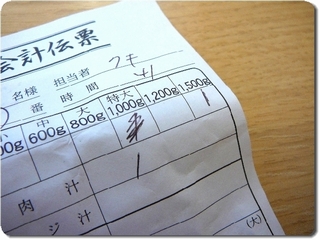 会計伝票
名様 担当者 フキ
番 時間
小 中 大 特大
00g 600g 800g 1,000g 1,200g 1,500g
1
肉汁
1
ジ汁
(大)